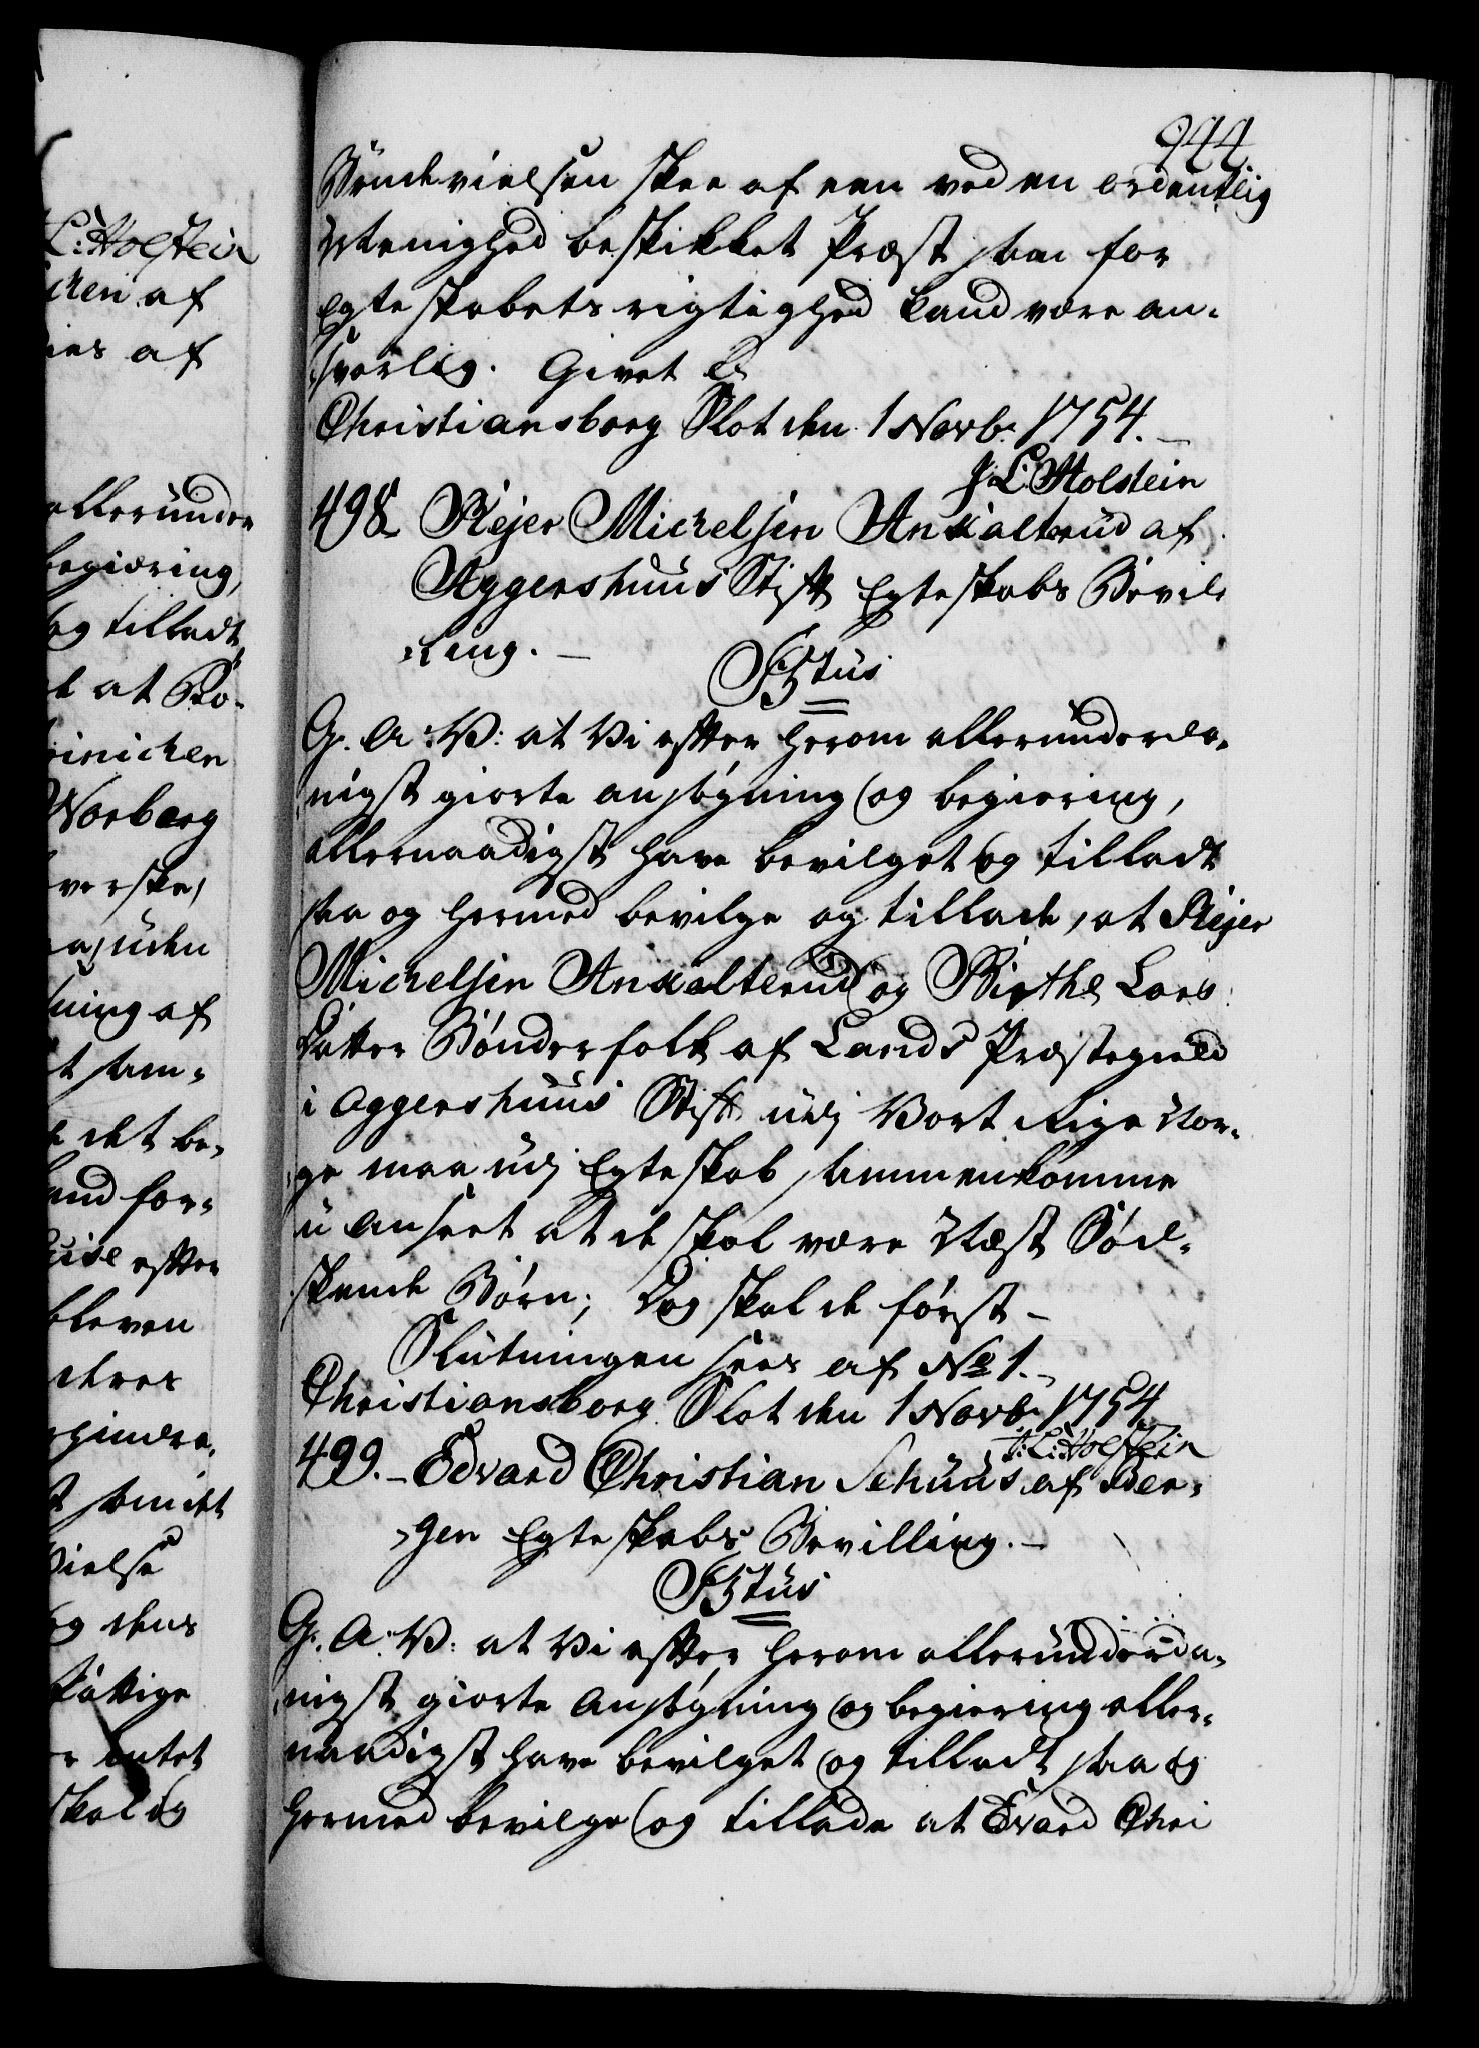 944.
Bøndevielsen skee af een ved en ordentlig
Meenighed beskikket Præst som for
Egteskabets rigtighed kand være an-
svarlig. Givet &
Christiansborg Slot den 1 Novb: 1754.
J. L. Holstein
498. Rejer Michelsen Anxalterud af
Aggershuus Stift Egteskabs Bevil-
ling. —
Fr. 5tus
G. A: V: at Vi efter herom allerunderda-
nigst giorte ansögning og begiering,
allernaadigst have bevilget og tilladt
saa og hermed bevilge og tillade, at Rejer
Michelsen Anxalterud og Birthe Lars
Datter Bönderfolk af Lands Præstegield
i Aggershuus Stift udj Vort Rige Nor-
ge maa udj Egteskab sammenkomme
u anseet at de skal være Næst Sød-
skende Börn; Dog skal de først —
Slutningen sees af No 1. —
Christiansborg Slot den 1 Novb: 1754
J: L: Holstein
499. — Edvard Christian Schuus af Ber-
gen Egteskabs Bevilling. —
Fr. 5tus
G. A: V: at Vi efter herom allerunderda-
nigst giorte Ansögning og begiering aller-
naadigst have bevilget og tilladt saa og
hermed bevilge og tillade at Evard Chri
L: Holstein
chen af
ies af
allerunder
begiering,
og tilladt,
at Bo-
inichen
Norberg
uden
ning af
t sam-
det be-
and for-
efter
bleven
deres
Vielse
og dens
fattige
intet
skal og